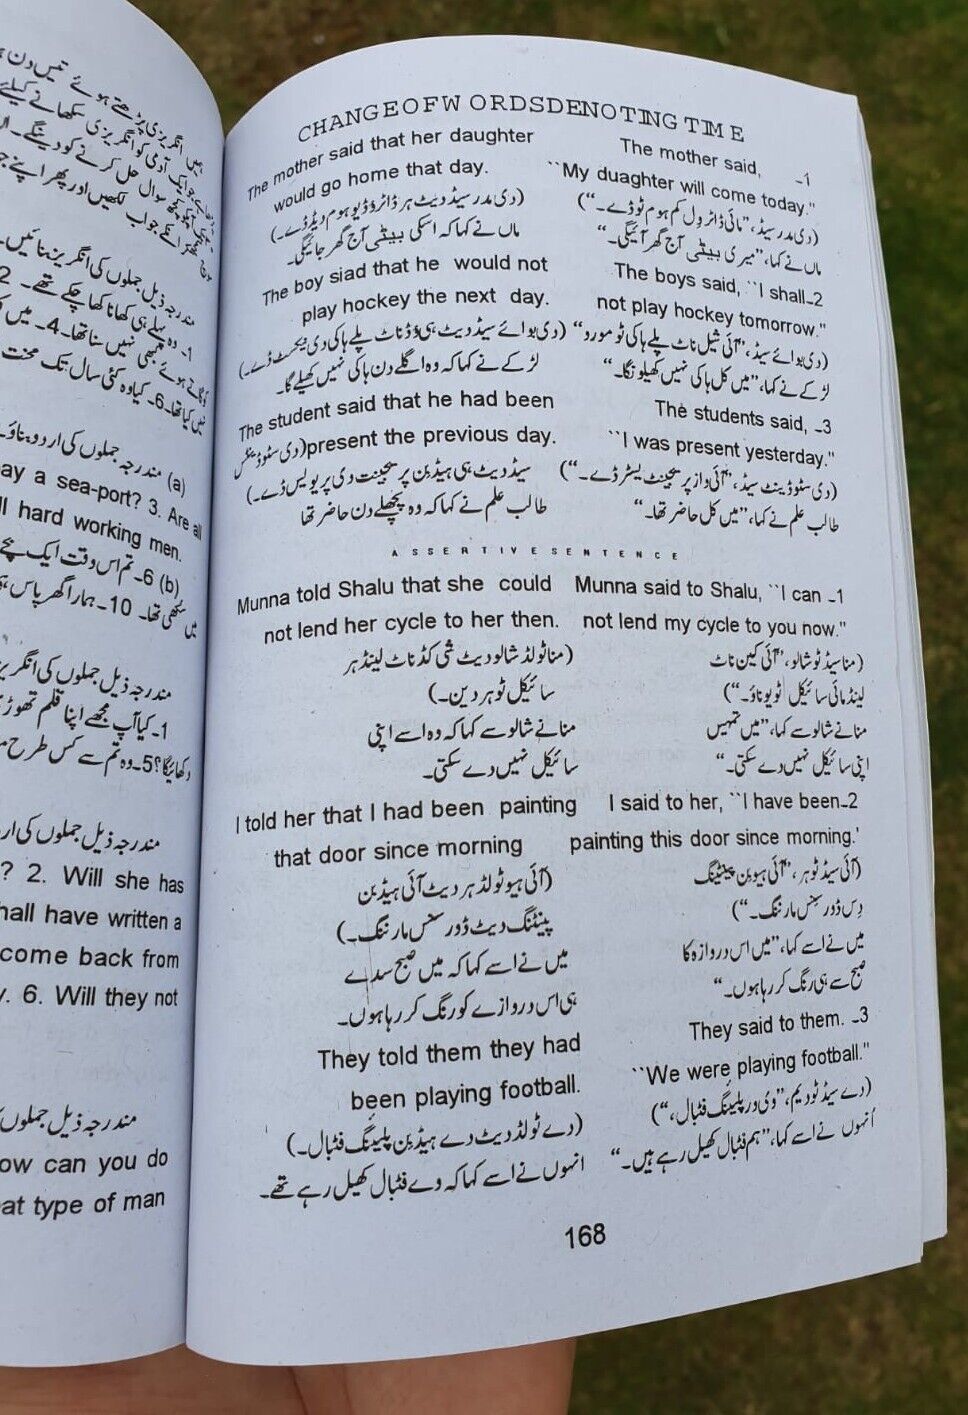 CHANGEOFW ORDSDENOTING TIME
The mother said, _1
``My duaghter will come today."
(دی مدر سیڈ، ”مائی ڈاٹر وِل کم ہوم ٹوڈے۔“)
ماں نے کہا، ”میری بیٹی آج گھر آئیگی۔“
The mother said that her daughter
would go home that day.
(دی مدر سیڈ دیٹ ہر ڈاٹر وُڈ گو ہوم دیٹ ڈے۔)
ماں نے کہا کہ اسکی بیٹی آج گھر جائیگی۔
The boys said, ``I shall_2
not play hockey tomorrow."
(دی بوائے سیڈ، ”آئی شیل ناٹ پلے ہاکی ٹومورو“
لڑکے نے کہا، ”میں کل ہاکی نہیں کھیلونگا۔“
The boy siad that he would not
play hockey the next day.
(دی بوائے سیڈ دیٹ ہی وُڈ ناٹ پلے ہاکی دی نیکسٹ ڈے۔)
لڑکے نے کہا کہ وہ اگلے دن ہاکی نہیں کھیلے گا۔
The students said, _3
``I was present yesterday."
(دی سٹوڈینٹ سیڈ، ”آئی واز پریجینٹ یسٹرڈے۔“)
طالب علم نے کہا، ”میں کل حاضر تھا۔“
The student said that he had been
present the previous day. (دی سٹوڈینٹس
سیڈ دیٹ ہی ہیڈ بِن پریجینٹ دی پریویس ڈے۔)
طالب علم نے کہا کہ وہ پچھلے دن حاضر تھا
ASSERTIVESENTENCE
Munna said to Shalu, ``I can _1
not lend my cycle to you now."
(منا سیڈ ٹو شالو، ”آئی کین ناٹ
لینڈ مائی سائیکل ٹو یو ناؤ۔“)
منا نے شالو سے کہا، ”میں تمہیں
اپنی سائیکل نہیں دے سکتی۔“
Munna told Shalu that she could
not lend her cycle to her then.
(منا ٹولڈ شالو دیٹ شی کڈ ناٹ لینڈ ہر
سائیکل ٹو ہر دین۔)
منا نے شالو سے کہا کہ وہ اسے اپنی
سائیکل نہیں دے سکتی۔
I said to her, ``I have been_2
painting this door since morning.'
(آئی سیڈ ٹو ہر، ”آئی ہیو بِن پینٹنگ
دِس ڈور سنس مارننگ۔“)
میں نے اسے کہا، ”میں اس دروازہ کا
صبح سے ہی رنگ کر رہا ہوں۔“
I told her that I had been painting
that door since morning
(آئی ہیو ٹولڈ ہر دیٹ آئی ہیڈ بِن
پینٹنگ دیٹ ڈور سنس مارننگ۔)
میں نے اسے کہا کہ میں صبح سدے
ہی اس دروازے کو رنگ کر رہا ہوں۔
They said to them. _3
``We were playing football."
(دے سیڈ ٹو دیم، ”وی ور پلیینگ فٹبال،“)
اُنہوں نے اسے کہا، ”ہم فٹبال کھیل رہے ہیں۔“
They told them they had
been playing football.
(دے ٹولڈ دیٹ دے ہیڈ بِن پلیینگ فٹبال۔)
انہوں نے اسے کہا کہ وے فٹبال کھیل رہے تھے۔
168
مندرجہ ذیل جملوں کی انگریز بنائیں۔
(a) مندرجہ جملوں کی اردو بناؤ۔
ay a sea-port? 3. Are all
ll hard working men.
(b) 6۔ تم اس وقت ایک
مندرجہ ذیل جملوں کی انگریز
1۔ کیا آپ مجھے اپنا قلم تھوڑی
مندرجہ ذیل جملوں کی ار
? 2. Will she has
hall have written a
come back from
y. 6. Will they not
مندرجہ ذیل جملوں
ow can you do
at type of man